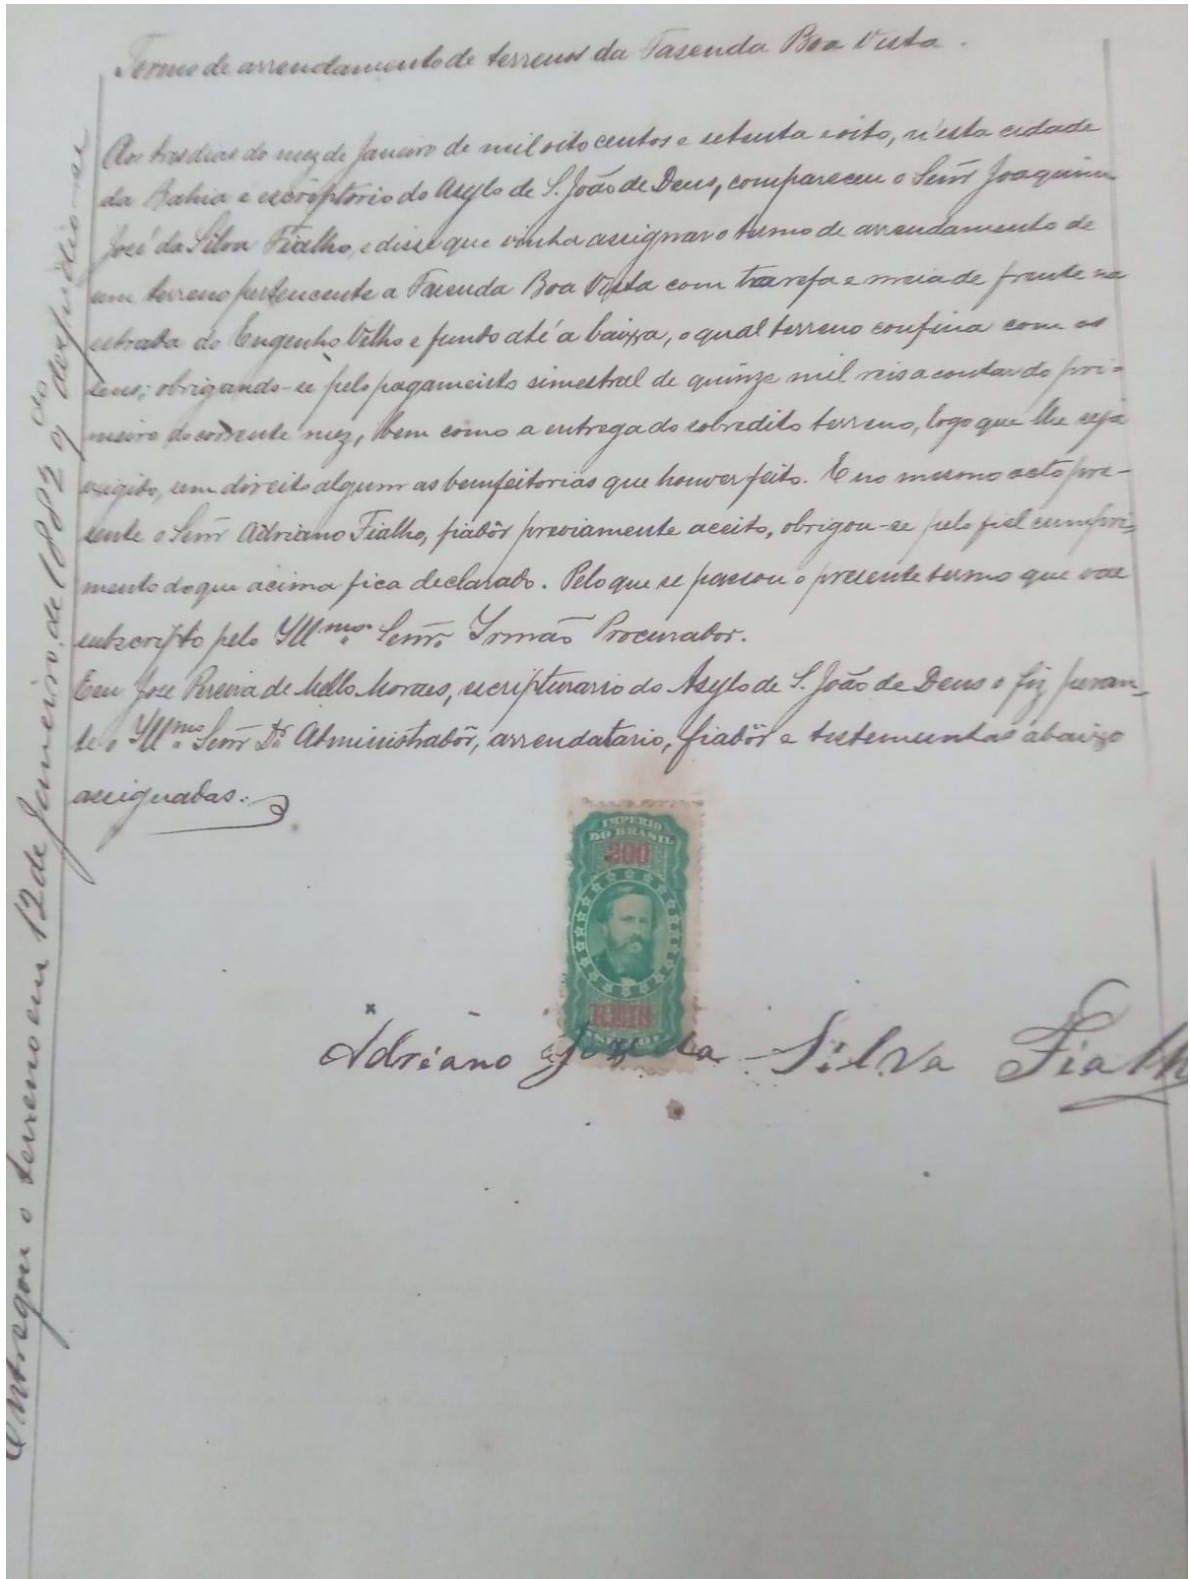 Termo de arrendamento de terrenos da Fazenda Boa Vista.
Aos tres dias do mez de Janeiro de mil oito centos e setenta e oito, n'esta cidade
da Bahia e escriptorio do Asylo de S. João de Deus, compareceu o Senr̃ Joaquim
José da Silva Fialho, e disse que vinha assignar o termo de arrendamento de
um terreno pertencente a Fazenda Boa Vista com tarefa e meia de frente na
estrada do Engenho Velho e fundo até a baixa, o qual terreno confina com os
seus; obrigando-se pelo pagamento simestral de quinze mil reis a contar do pri-
meiro do corrente mez, bem como a entrega do sobredito terreno, logo que lhe seja
exigido, sem direito algum as bemfeitorias que houver feito. E no mesmo acto pre-
sente o Senr̃ Adriano Fialho, fiadôr previamente aceito, obrigou-se pelo fiel cumpri-
mento do que acima fica declarado. Pelo que se passou o presente termo que vae
subscripto pelo Illmo. Senr̃. Irmão Procurador.
E eu José Pereira de Mello Moraes, escripturario do Asylo de S. João de Deus o fiz peran-
te o Illmo. Senr̃ Dr. Administradôr, arrendatario, fiadôr e testemunhas abaixo
assignadas.
IMPERIO
DO BRASIL
200
REIS
Adriano José da Silva Fialho
Entregou o terreno em 12 de Janeiro de 1882